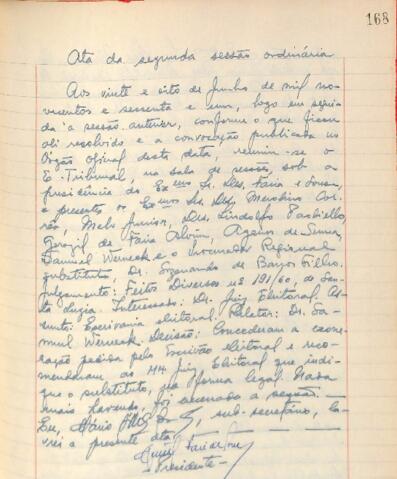 168
Ata da segunda sessão ordinária
Aos vinte e oito de Junho de mil no-
vecentos e sessenta e um, logo em segui-
da à sessão anterior, conforme o que ficou
ali resolvido e a convocação publicada no
Órgão oficial desta data, reuniu-se o
E. Tribunal, na sala de sessões, sob a
presidência do Exmo Sr. Des. Faria e Sousa,
e presentes os Exmos Srs. Des. Merolino Cor-
rêa, Melo Junior, Drs. Lindolfo Paoliello,
Gorazil de Faria Alvim, Agenor de Senna,
Samuel Werneck e o Procurador Regional
substituto, Dr. de Barros Filho.
Julgamento: Feitos Diversos nº 191/60, de San-
ta Luzia. Interessado: Dr. Juiz Eleitoral. As-
sunto: Escrivania eleitoral. Relator: Dr. Sa-
muel Werneck. Decisão: Concederam a exone-
ração pedida pelo Escrivão eleitoral e reco-
mendaram ao MM Juiz Eleitoral que indi-
que o substituto, na forma legal. Nada
mais havendo, foi encerrada a sessão.
Eu, sub-secretário, la-
vrei a presente ata.
Presidente -